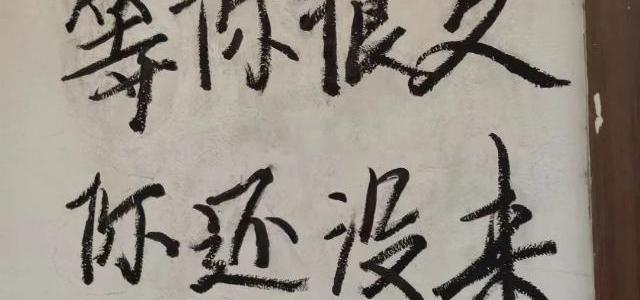 等你很久
你还没来